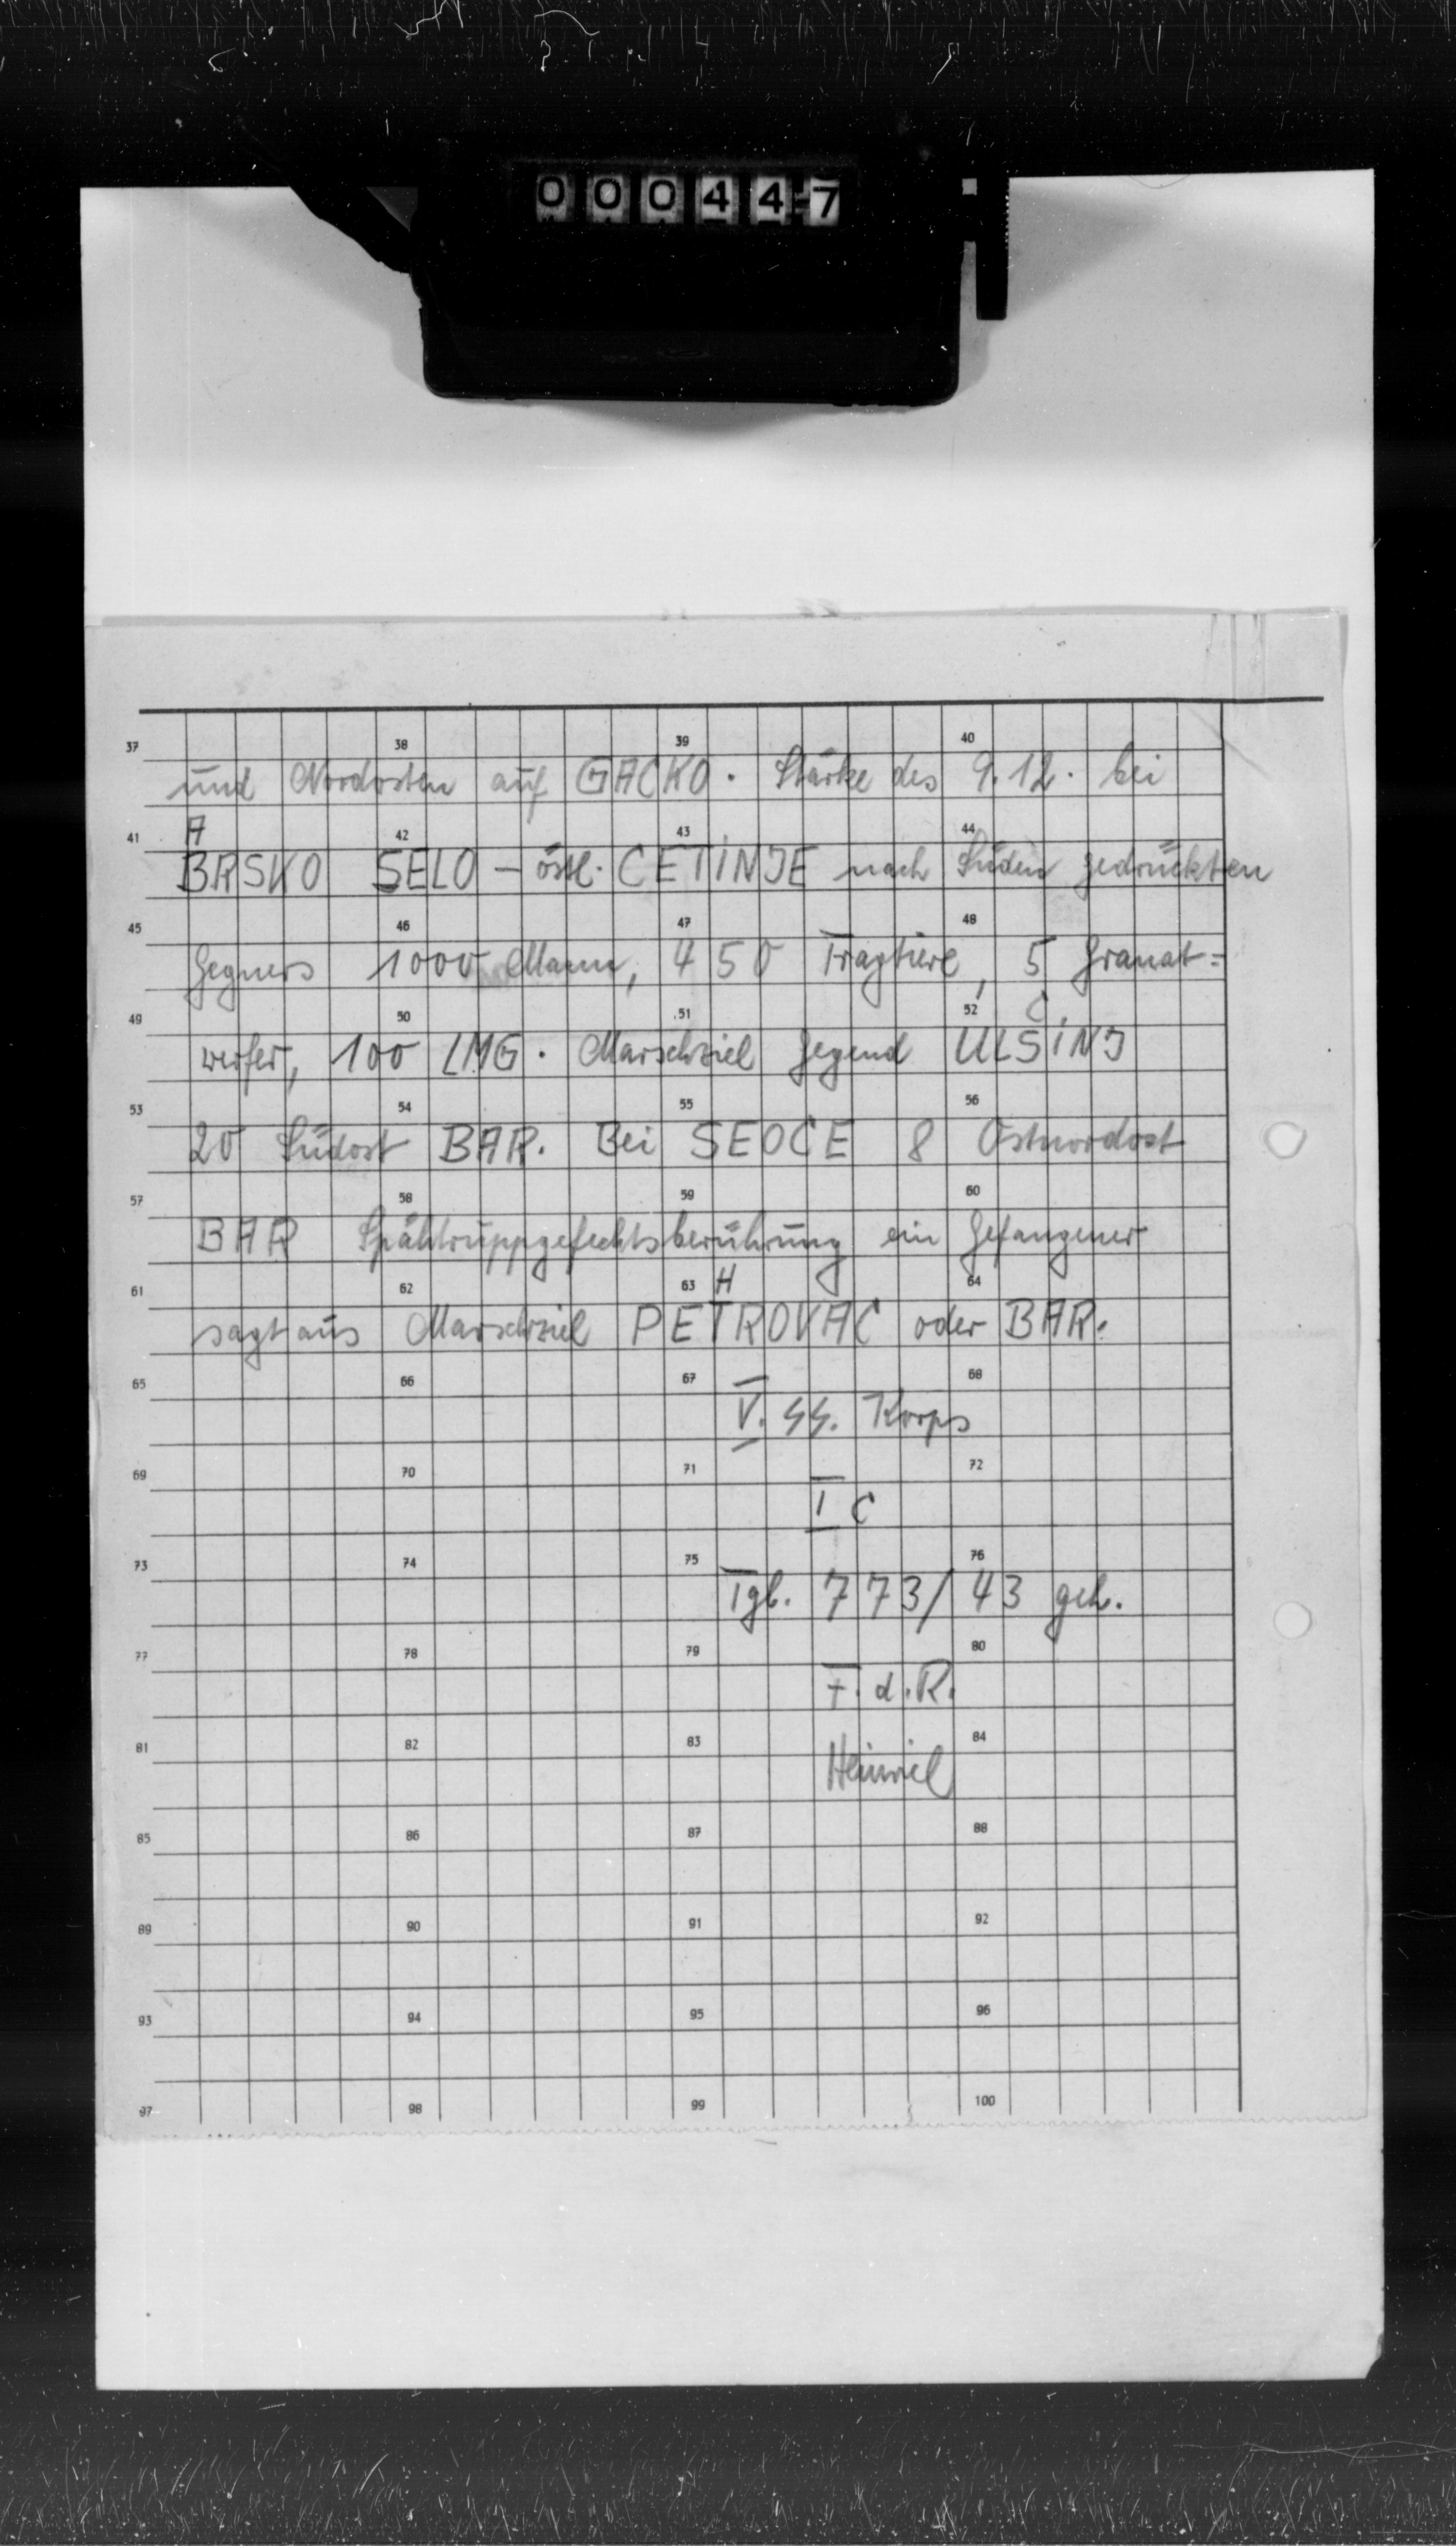 000447
37 38 39 40
und Nordosten auf GACKO. Stärke des 9.12. bei
A
41 42 43 44
BRSKO SELO – östl. CETINJE nach Süden gedrückten
45 46 47 48
Gegners 1000 Mann, 450 Tragtiere, 5 Granat=
C
49 50 51 52
werfer, 100 LMG. Marschziel Gegend ULSINJ
53 54 55 56
20 Südost BAR. Bei SEOCE 8 Ostnordost
57 58 59 60
BAR Spähtruppgefechtsberührung ein Gefangener
H
61 62 63 64
sagt aus Marschziel PETROVAC oder BAR.
65 66 67 68
V. SS. Korps
69 70 71 72
I c
73 74 75 76
Tgb. 773/43 geh.
77 78 79 80
F. d. R.
81 82 83 84
85 86 87 88
89 90 91 92
93 94 95 96
97 98 99 100